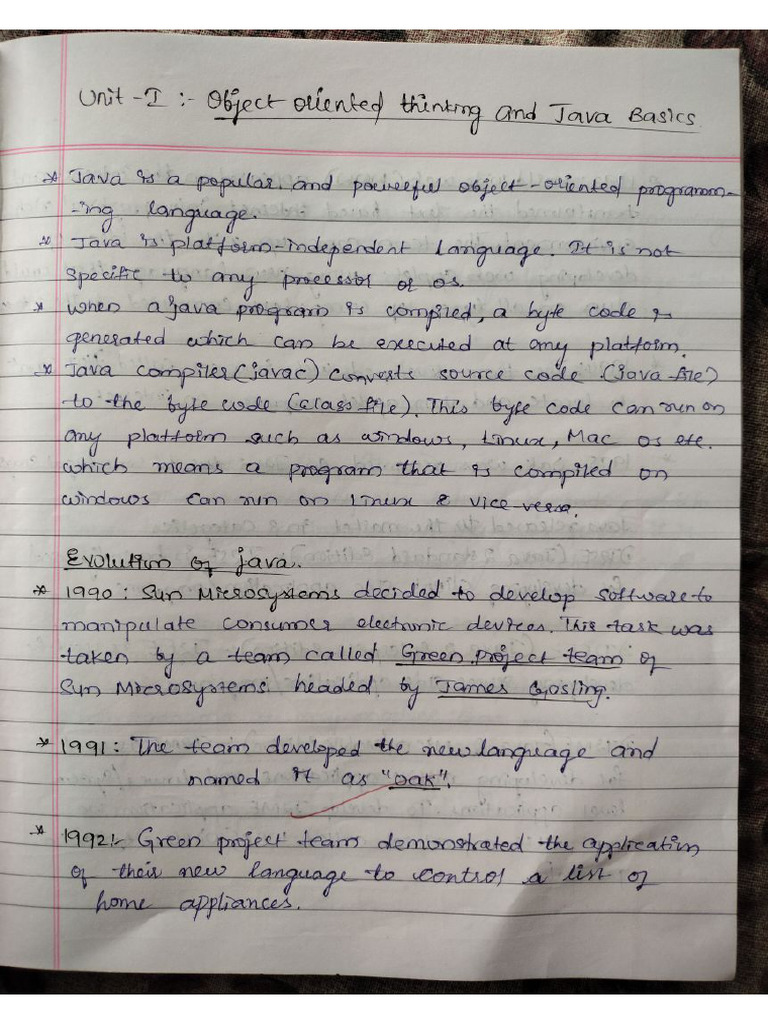 Unit-I :- Object oriented thinking and Java Basics
* Java is a popular and powerful object-oriented programm-
-ing language.
* Java is platform-independent language. It is not
specific to any processor or os.
* when a java program is compiled, a byte code is
generated which can be executed at any platform.
* Java compiler (javac) converts source code (java file)
to the byte code (class file). This byte code can run on
any platform such as windows, Linux, Mac os etc.
which means a program that is compiled on
windows can run on Linux & vice-versa.
Evolution of java.
* 1990: Sun Microsystems decided to develop software to
manipulate consumer electronic devices. This task was
taken by a team called Green project team of
Sun Microsystems headed by James Gosling.
* 1991: The team developed the new language and
named it as "oak".
* 1992:- Green project team demonstrated the application
of their new language to control a list of
home appliances.